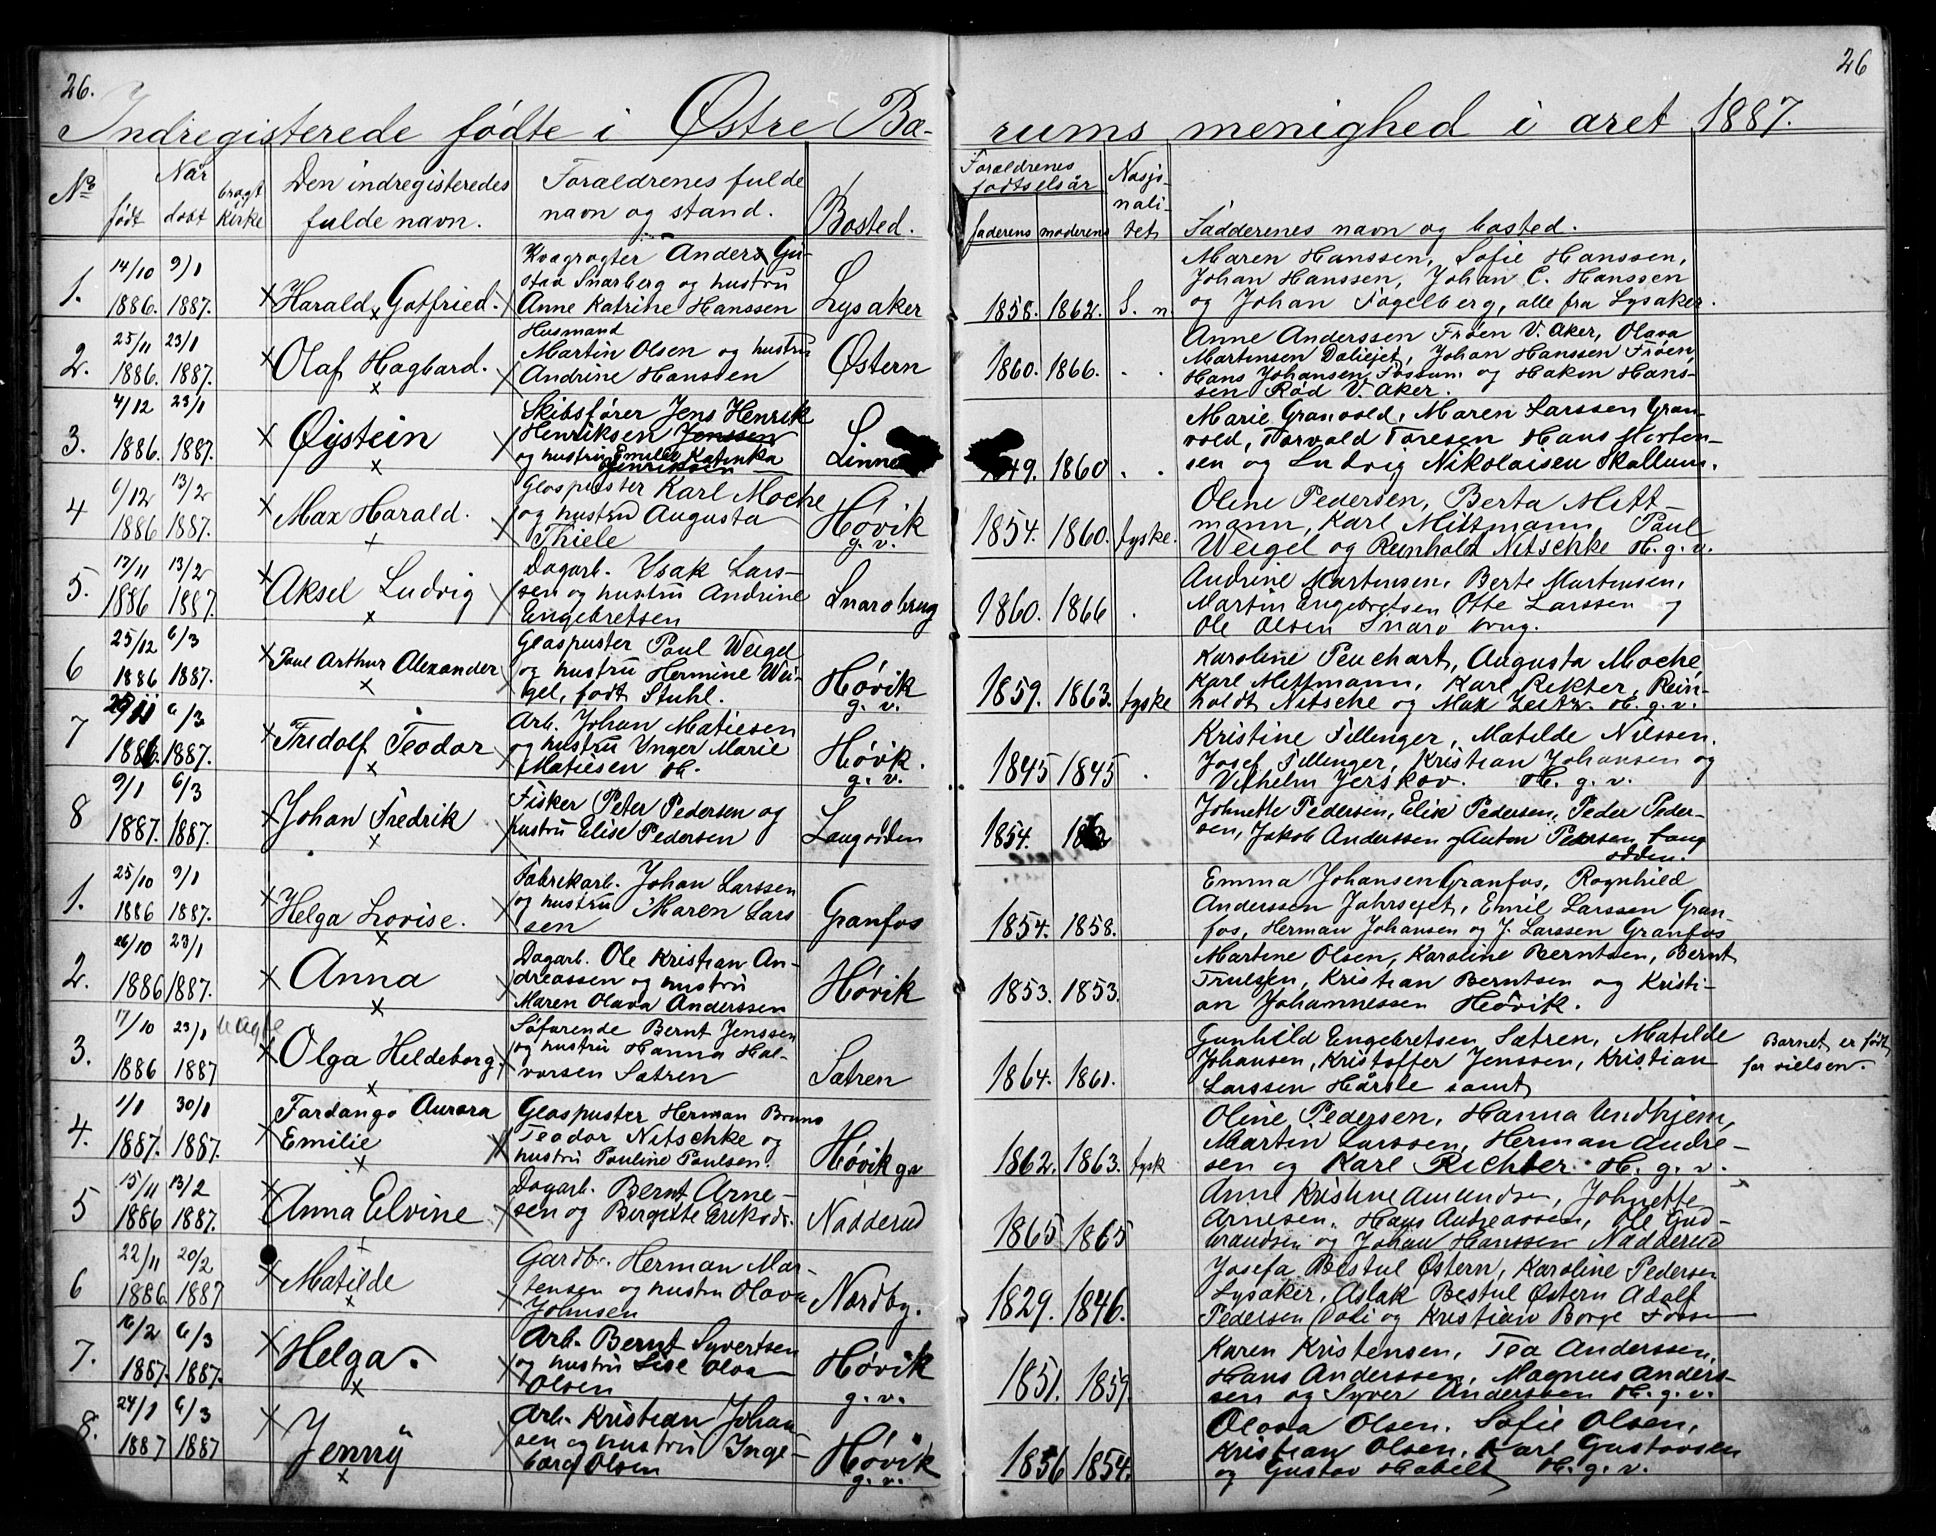 26.
26
Indregisterede fødte i Østre Bæ-
rums menighed i året 1887.
No
Når
født
døbt
bragt kirke
Den indregisteredes
fulde navn.
Forældrenes fulde
navn og stand.
Bosted.
Forældrenes
fødselsår
faderens moderens
Nasjo-
nali-
tet
Fadderenes navn og bosted.
1.
14/10 9/1
1886. 1887.
Harald Gotfried.
Kvægrøgter Anders Gu-
stav Snarberg og hustru
Anne Katrine Hanssen
Lysaker
1858. 1862. S. n.
Maren Hanssen, Sofie Hanssen,
Johan Hanssen, Johan C. Hanssen
og Johan Fogelberg, alle fra Lysaker.
2.
25/11 23/1
1886. 1887.
Olaf Hagbard.
Husmand
Martin Olsen og hustru
Andrine Hanssen
Østern
1860. 1866. . .
Anne Anderssen Frøen V. Aker, Olava
Martinsen Daliejet, Johan Hanssen Frøen,
Hans Johansen Fossum og Hakon Hans-
sen Rød V. Aker.
3.
4/12 23/1
1886. 1887.
Øistein
Skibsfører Jens Henrik
Henriksen Jenssen
og hustru Emilie Katinka
Henriksen
Linne
1849. 1860 . .
Marie Granvold, Maren Larssen Gran-
vold, Torvald Toresen Hans Morten-
sen og Ludvig Nikolaisen Skallum.
4
6/12 13/2
1886 1887.
Max Harald.
Glaspuster Karl Moche
og hustru Augusta
Thiele
Høvik
g. v.
1854. 1860. tyske.
Oline Pedersen, Berta Mitt-
mann, Karl Mittmann, Paul
Weigel og Reinhold Nitschke H. g. v.
5.
13/11 13/2
1886 1887.
Aksel Ludvig
Dagarb. Isak Lars-
sen og hustru Andrine
Engebretsen
Snarøbrug
1860. 1866 .
Andrine Martensen, Berte Martensen,
Martin Engebretsen Otte Larssen og
Ole Olsen Snarø brug.
6
25/12 6/3
1886 1887.
Paul Arthur Alexander
Glaspuster Paul Weigel
og hustru Hermine Wei-
gel, født Stuhl.
Høvik
g. v.
1859. 1863. tyske
Karoline Peuchart, Augusta Moche,
Karl Mittmann, Karl Rikter, Rein-
holdt Nitsche og Max Zeitz. H. g. v.
7
6/3
1886. 1887.
Fridolf Teodor
Arb. Johan Matiesen
og hustru Inger Marie
Matiesen H.
Høvik.
g. v.
1845 1845 .
Kristine Fillinger, Matilde Nilssen.
Josef Fillinger, Kristian Johansen og
Vilhelm Jerskov. H. g. v.
8
9/1 6/3
1887. 1887.
Johan Fredrik
Fisker Peter Pedersen og
hustru Elise Pedersen
Langodden
1854.
Johnette Pedersen, Elise Pedersen, Peder Peder-
sen, Jakob Anderssen og Anton Pedersen, Lang
odden.
1.
25/10 9/1
1886 1887.
Helga Lovise.
Fabrikarb. Johan Larssen
og hustru Maren Lars
sen
Granfos
1854. 1858.
Emma Johansen Granfos, Ragnhild
Anderssen Jahrsejet, Emil Larssen Gran-
fos, Herman Johansen og J. Larssen Granfos
2.
26/10 23/1
1886 1887.
Anna
Dagarb. Ole Kristian An-
dreassen og hustru
Maren Olava Anderssen
Høvik
1853. 1853.
Martine Olsen, Karoline Berntsen, Bernt
Trulsen, Kristian Berntsen og Kristi-
an Johannessen Høvik.
3.
17/10 23/1
1886 1887
Olga Heldeborg.
Søfarende Bernt Jenssen
og hustru Hanna Hal-
vorsen Sætren
Sætren
1864. 1861.
Gunhild Engebretsen Sætren, Matilde
Johansen, Kristoffer Jenssen, Kristian
Larssen Hårtle samt
Barnet er født
før vielsen.
4.
1/1 30/1
1887. 1887.
Fardango Aurora
Emilie
Glaspuster Herman Bruno
Teodor Nitschke og
hustru Pauline Paulsen.
Høvik g v
1862. 1863. tysk
Oline Pedersen, Hanna Undhjem,
Martin Larssen, Herman Andre-
sen og Karl Richter. H. g. v.
5
15/11 13/2
1886 1887.
Anna Elvine
Dagarb. Bernt Arne-
sen og Birgitte Eriksdr.
Nadderud
1865 1865
Anne Kristine Amundsen, Johnette
Arnesen, Hans Andreassen, Ole Gud-
brandsen og Johan Hanssen Nadderud
6
22/11 20/2
1886 1887
Matilde
Gardbr. Herman Mar-
tensen og hustru Olava
Johnsen
Nordby.
1829. 1846.
Josefa Bestul Østern, Karoline Pedersen
Lysaker, Aslak Bestul Østern Adolf
Pedersen Voli og Kristian Borge Fossum
7.
16/2 6/3
1887. 1887.
Helga.
Arb. Bernt Syvertsen
og hustru Lise Olva
Olsen
Høvik
g. v.
1851. 1859.
Karen Kristensen, Tea Anderssen,
Hans Anderssen, Magnus Anders-
sen og Syver Anderssen H. g. v.
8.
24/1 6/3
1887 1887
Jenny
Arb. Kristian Johan
sen og hustru Inge-
borg Olsen
Høvik
g. v.
1856 1854.
Olava Olsen, Sofie Olsen,
Kristian Olsen, Karl Gustavsen
og Gustav Habelt H. g. v.